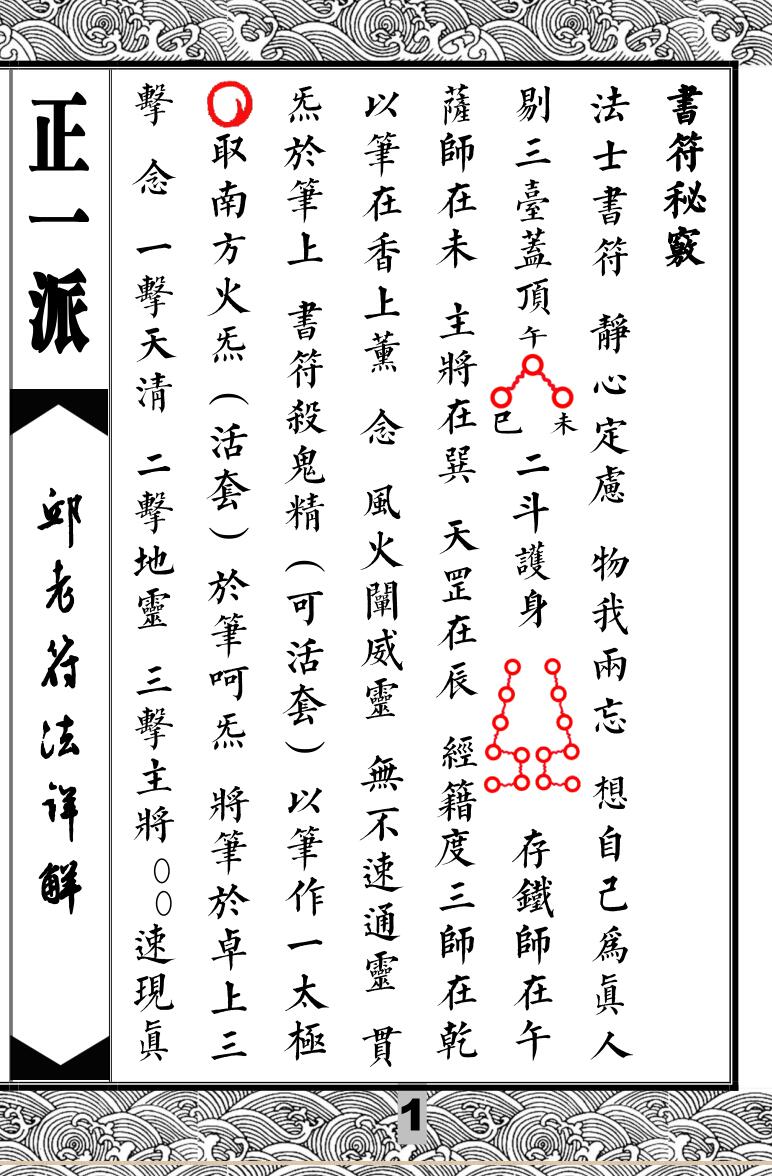 書符秘竅
法士書符 靜心定慮 物我兩忘 想自己爲眞人
剔三臺蓋頂 午 巳 未 二斗護身 存鐵師在午
薩師在未 主將在巽 天罡在辰 經籍度三師在乾
以筆在香上薰 念 風火闡威靈 無不速通靈 貫
炁於筆上 書符殺鬼精(可活套)以筆作一太極
取南方火炁(活套)於筆呵炁 將筆於卓上三
擊 念 一擊天清 二擊地靈 三擊主將○○速現眞
正一派
邱老符法详解
1